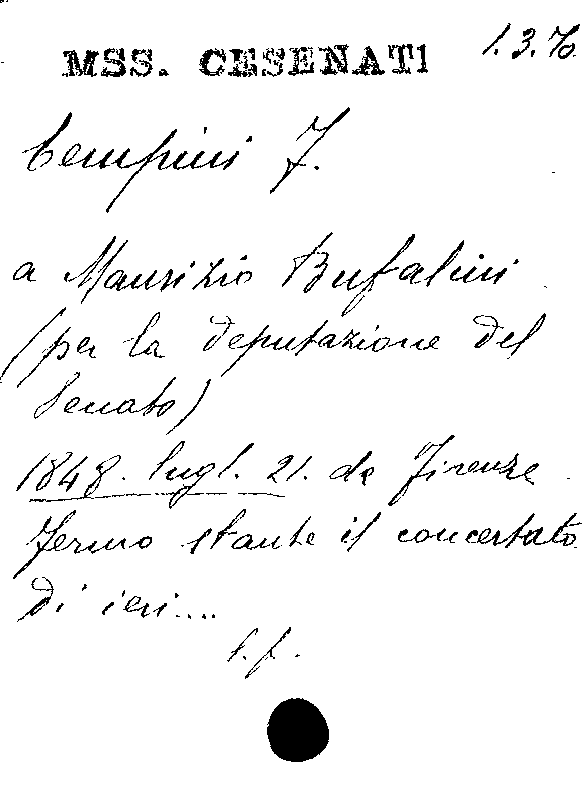 MSS. CESENATI 1.3.70
Cempini F.
a Maurizio Bufalini
(per la deputazione del
Senato)
1848. lugl. 21. da Firenze
Fermo stante il concertato
di ieri....
l.f.